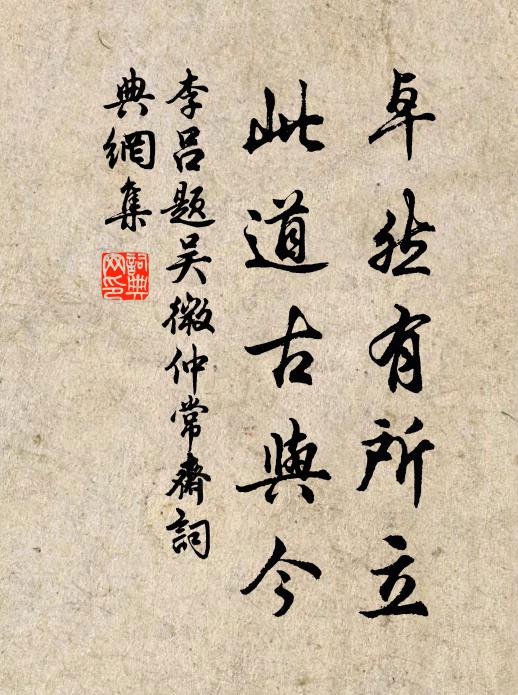 卓然有所立
此道古與今
李呂題吴微仲常齋詞
典網集
詞典
网印